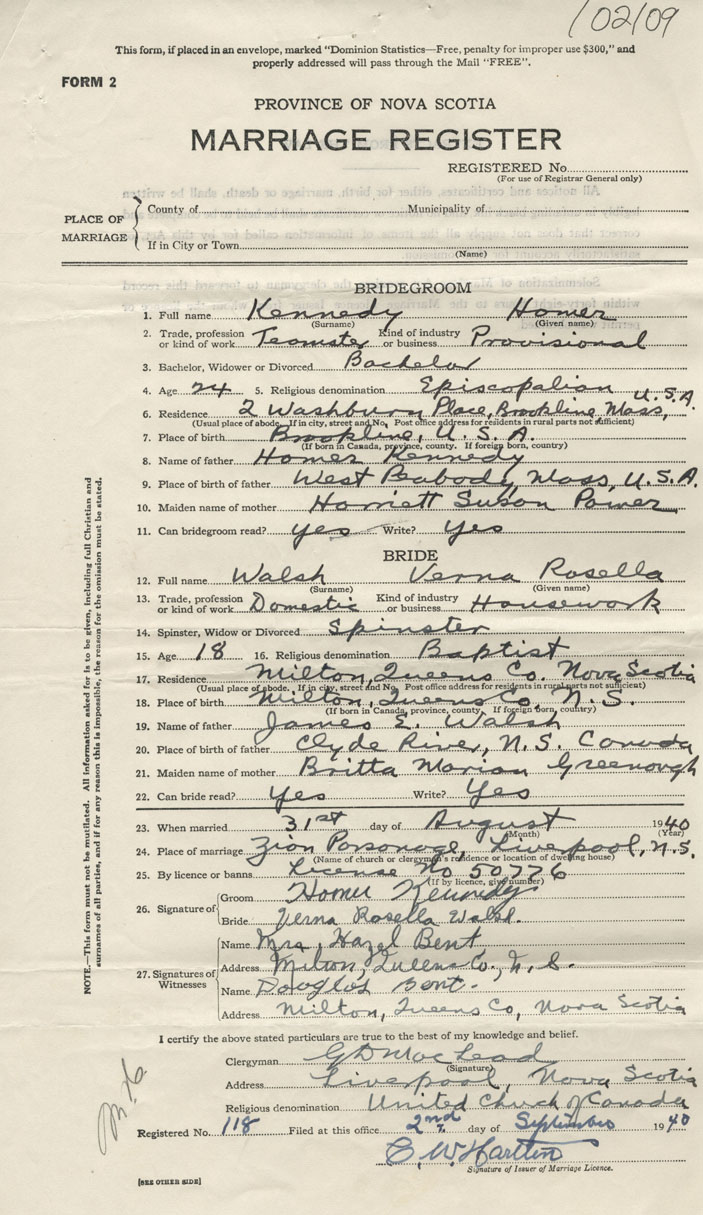 102109
This form, if placed in an envelope, marked "Dominion Statistics—Free, penalty for improper use $300," and
properly addressed will pass through the Mail "FREE".
FORM 2
PROVINCE OF NOVA SCOTIA
MARRIAGE REGISTER
REGISTERED No.
(For use of Registrar General only)
PLACE OF MARRIAGE
County of Municipality of
If in City or Town
(Name)
BRIDEGROOM
1. Full name Kennedy Homer
(Surname) (Given name)
2. Trade, profession or kind of work Teamster Kind of industry or business Provisional
3. Bachelor, Widower or Divorced Bachelor
4. Age 24 5. Religious denomination Episcopalian
6. Residence 2 Washburn Place, Brookline Mass, U.S.A.
(Usual place of abode. If in city, street and No. Post office address for residents in rural parts not sufficient)
7. Place of birth Brookline, U.S.A.
(If born in Canada, province, county. If foreign born, country)
8. Name of father Homer Kennedy
9. Place of birth of father West Peabody, Mass, U.S.A.
10. Maiden name of mother Harriett Susan Power
11. Can bridegroom read? yes Write? Yes
BRIDE
12. Full name Walsh Verna Rosella
(Surname) (Given name)
13. Trade, profession or kind of work Domestic Kind of industry or business Housework
14. Spinster, Widow or Divorced Spinster
15. Age 18 16. Religious denomination Baptist
17. Residence Milton, Queens Co. Nova Scotia
(Usual place of abode. If in city, street and No. Post office address for residents in rural parts not sufficient)
18. Place of birth Milton, Queens Co. N.S.
(If born in Canada, province, county. If foreign born, country)
19. Name of father James E. Walsh
20. Place of birth of father Clyde River, N.S. Canada
21. Maiden name of mother Britta Marion Greenough
22. Can bride read? Yes Write? Yes
23. When married 31st day of August 1940
(Month) (Year)
24. Place of marriage Zion Parsonage, Liverpool, N.S.
(Name of church or clergyman's residence or location of dwelling house)
25. By licence or banns License No 50776
(If by licence, give number)
26. Signature of
Groom Homer Kennedy
Bride Verna Rosella Walsh.
27. Signatures of Witnesses
Name Mrs. Hazel Bent
Address Milton, Queens Co., N.S.
Name Douglas Bent.
Address Milton, Queens Co, Nova Scotia
I certify the above stated particulars are true to the best of my knowledge and belief.
Clergyman G D MacLead
(Signature)
Address Liverpool, Nova Scotia
Religious denomination United Church of Canada
Registered No. 118 Filed at this office 2nd day of September 1940
Signature of Issuer of Marriage Licence.
[SEE OTHER SIDE]
NOTE.—This form must not be mutilated. All information asked for is to be given, including full Christian and
surnames of all parties, and if for any reason this is impossible, the reason for the omission must be stated.